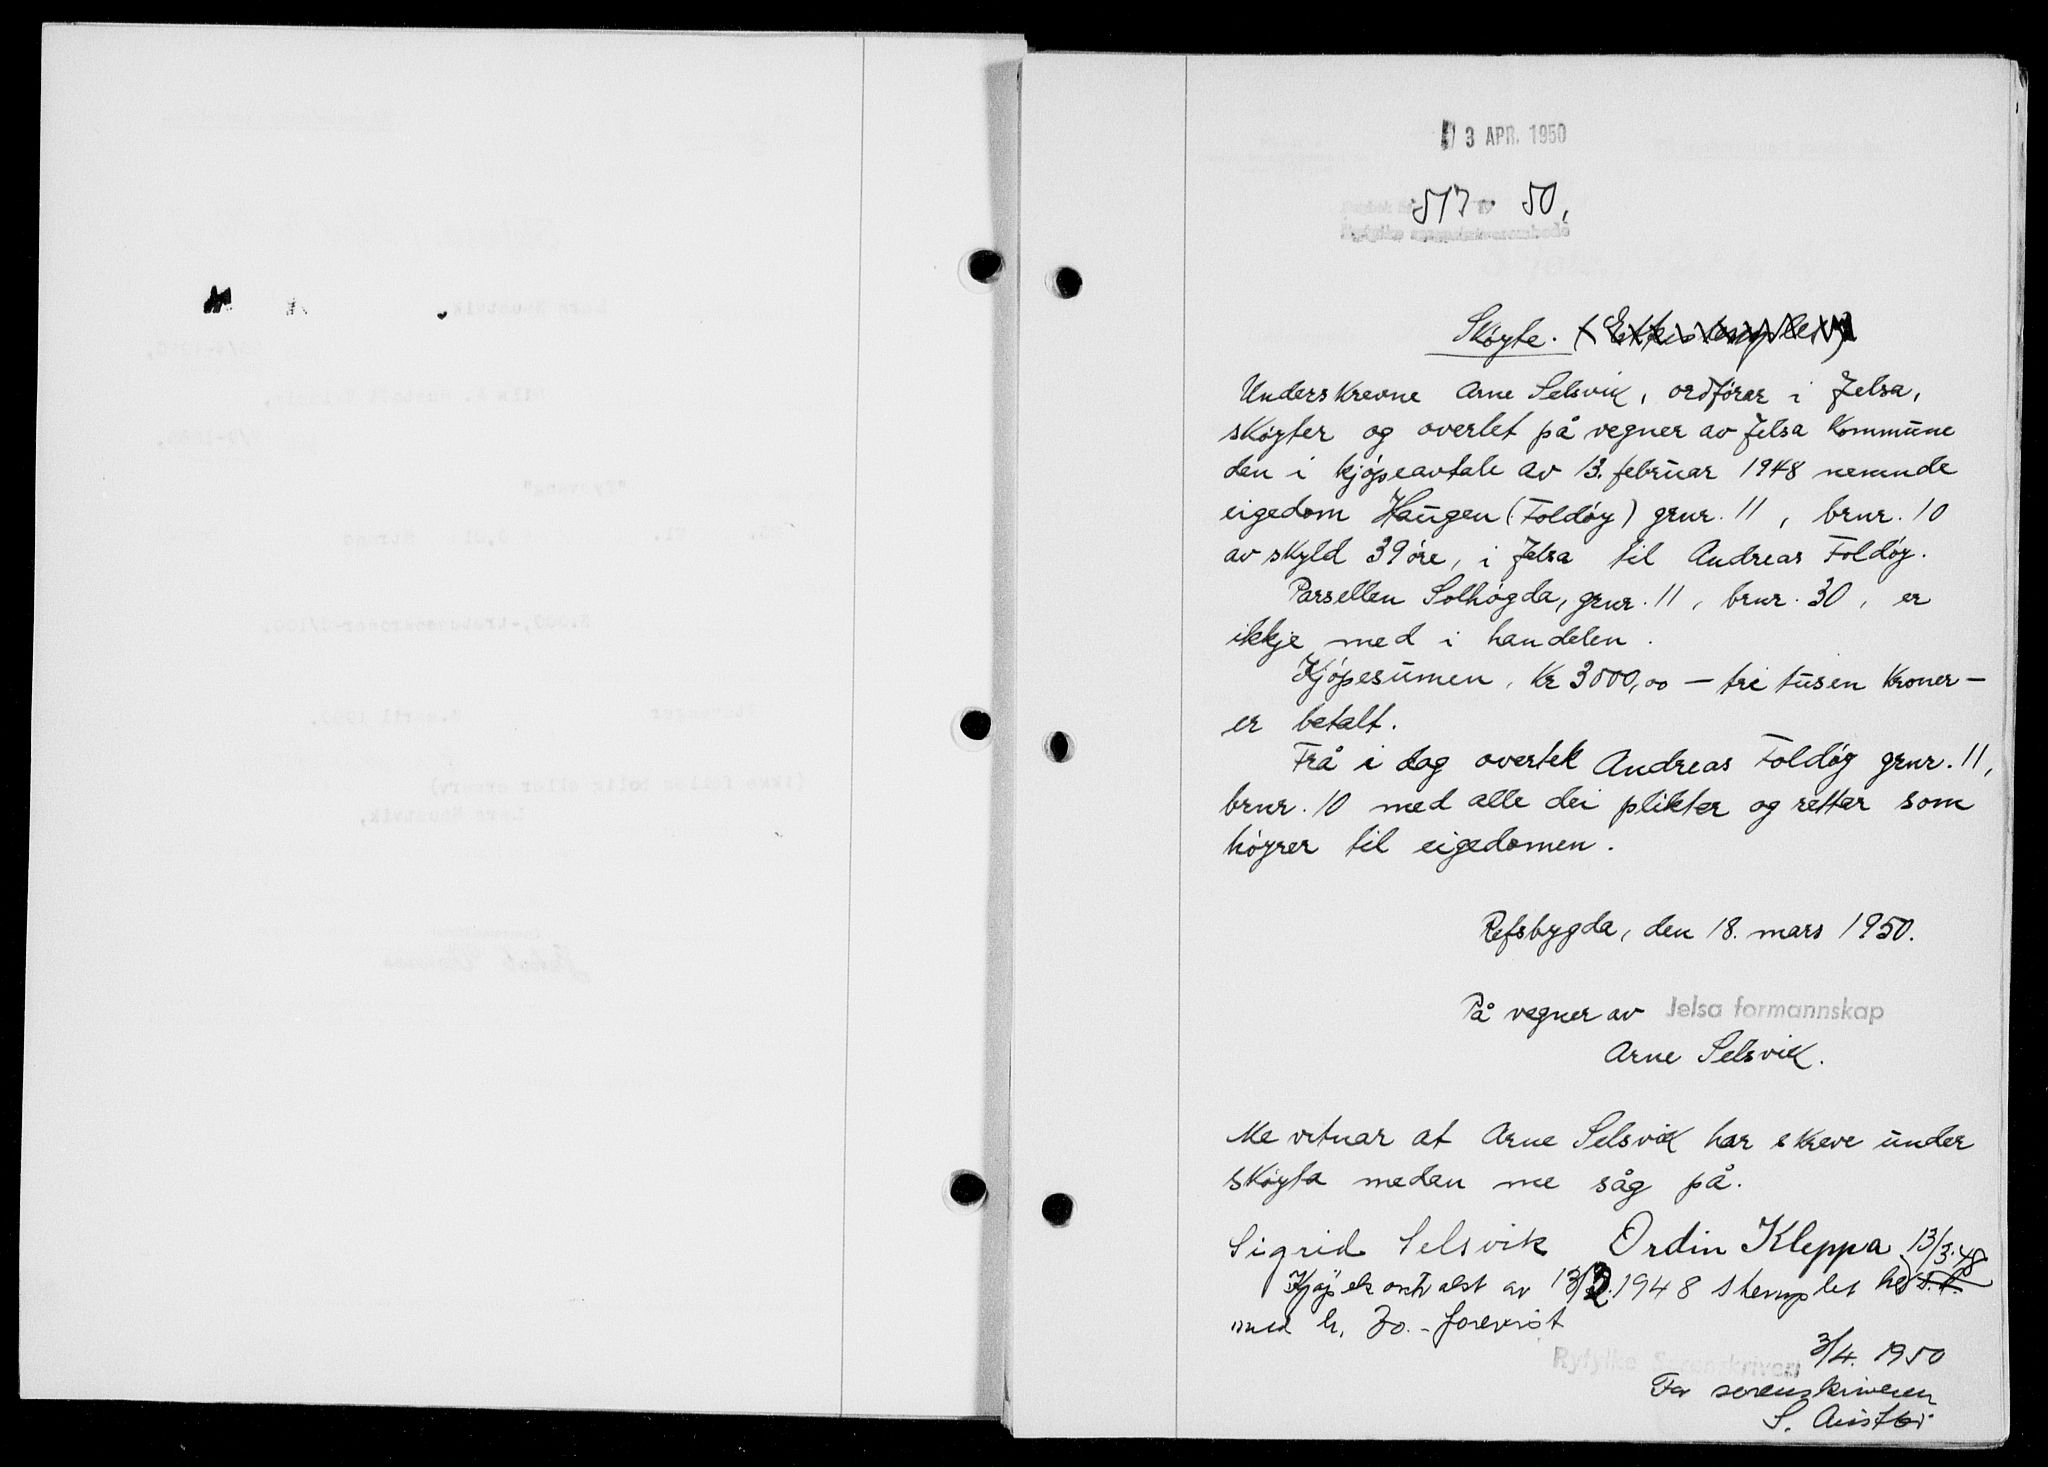 3 APR. 1950
517 50,
Skøyte.
Underskrevne Arne Selsvik, ordførar i Jelsa,
skøyter og overlet på vegner av Jelsa kommune
den i kjøpeavtale av 13. februar 1948 nemnde
eigedom Haugen (Foldøy) grnr. 11, brnr. 10
av skyld 39 øre, i Jelsa til Andreas Foldøy.
Parsellen Solhøgda, grnr. 11, brnr. 30, er
ikkje med i handelen.
Kjøpesumen, kr 3000,00 — tri tusen kroner —
er betalt.
Frå i dag overtek Andreas Foldøy grnr. 11,
brnr. 10 med alle dei plikter og retter som
høyrer til eigedomen.
Refsbygda, den 18. mars 1950.
På vegner av Jelsa formannskap
Arne Selsvik.
Me vitnar at Arne Selsvik har skreve under
skøyta medan me såg på.
Sigrid Selsvik Ordin Kleppa 13/3.48
Kjøpekontrakt av 13/2.1948 stemplet
med kr. 30.- forevist
Ryfylke Sorenskriveri 3/4. 1950
For sorenskriveren
S. Austbø